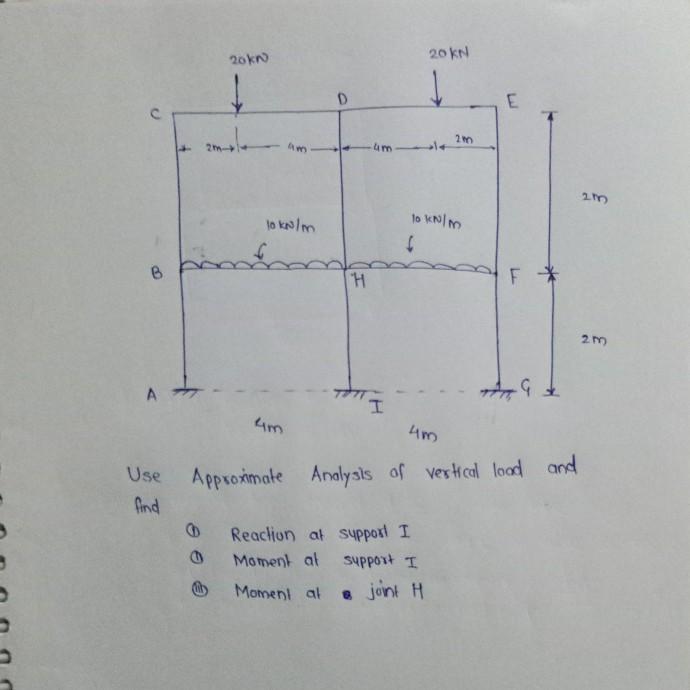 20 kN 20 kN
C D E
2m 4m 4m 2m
2m
10 kN/m 10 kN/m
B H F
2m
A I G
4m 4m
Use Approximate Analysis of vertical load and
find
(i) Reaction at support I
(ii) Moment at support I
(iii) Moment at joint H